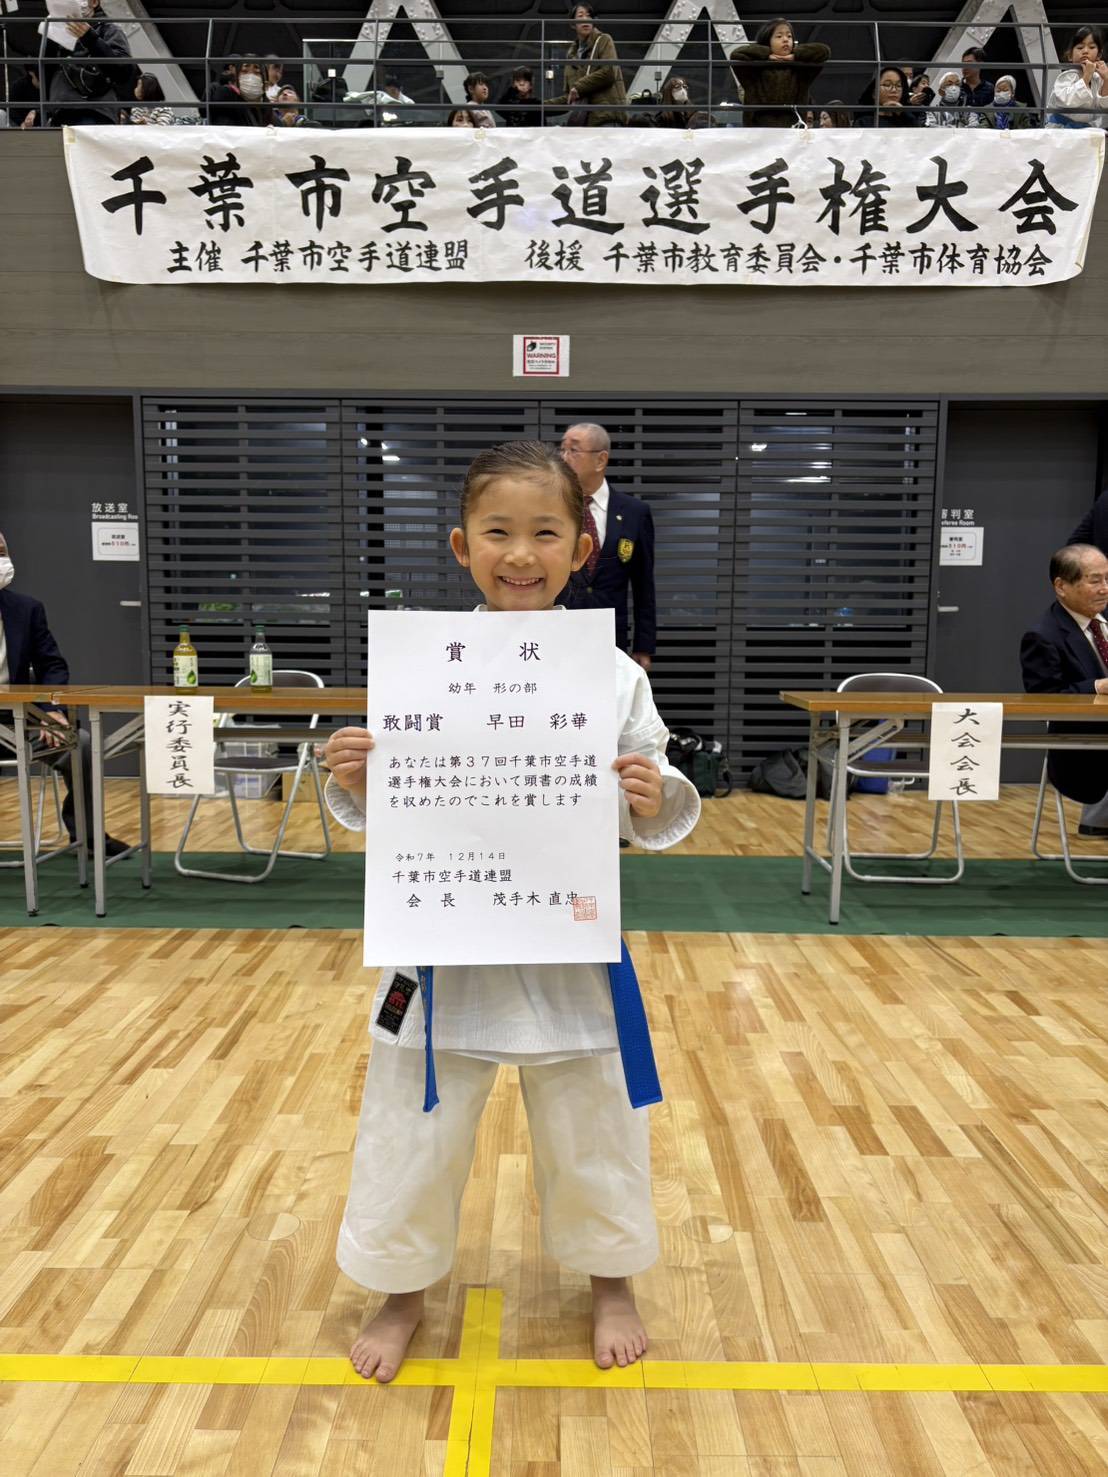 千葉市空手道選手権大会
主催 千葉市空手道連盟 後援 千葉市教育委員会・千葉市体育協会
WARNING
放送室
Broadcasting Roo
審判室
eferee Room
実行委員長
大会会長
賞 状
幼年 形の部
敢闘賞 早田 彩華
あなたは第37回千葉市空手道
選手権大会において頭書の成績
を収めたのでこれを賞します
令和7年 12月14日
千葉市空手道連盟
会 長 茂手木 直忠